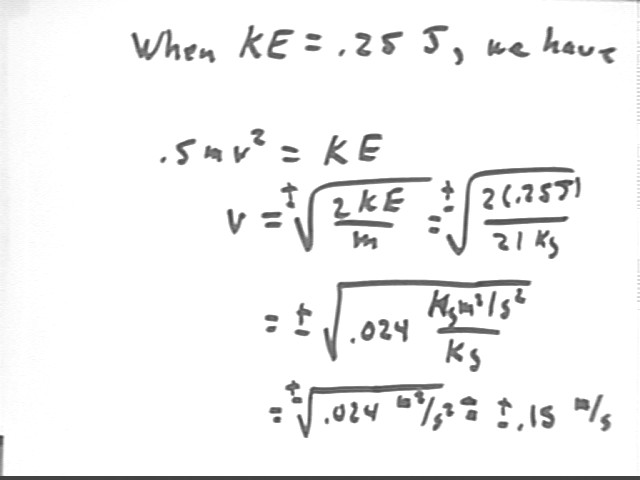 When KE = .25 J, we have
.5mv² = KE
v = ±√(2KE/m) = ±√(2(.25J)/21 Kg)
= ±√(.024 Kgm²/s²/Kg)
= ±√(.024 m²/s²) = ±.15 m/s